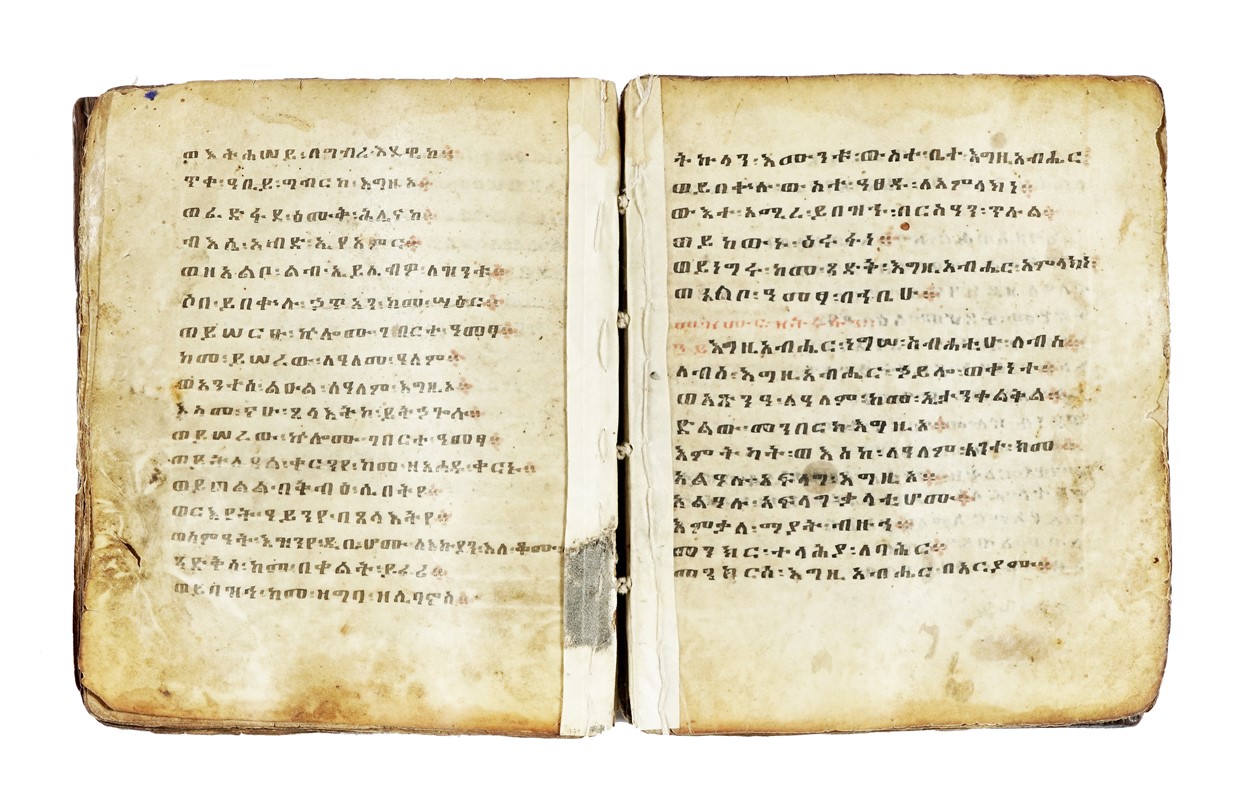 ወእትሐሠይ፡ለግብረ፡እደዊከ።
ጥቀ፡ዓቢይ፡ግብርከ፡እግዚኦ።
ወፈድፋደ፡ዕሙቅ፡ሕሊናከ።
ብእሲ፡አብድ፡ኢየአምር።
ወዘአልቦ፡ልብ፡ኢይሌብዎ፡ለዝንቱ።
ሶበ፡ይበቍሉ፡ኃጥአን፡ከመ፡ሣዕር።
ወይሠርፁ፡ኵሎሙ፡ገበርተ፡ዓመፃ።
ከመ፡ይሠረው፡ለዓለመ፡ዓለም።
ወአንተሰ፡ልዑል፡ለዓለም፡እግዚኦ።
እስመ፡ናሁ፡ጸላእትከ፡ይትኃጐሉ።
ወይሠረው፡ኵሎሙ፡ገበርተ፡ዓመፃ።
ወይትሌዓል፡ቀርንየ፡ከመ፡ዘአሐዱ፡ቀርኑ።
ወይጠልል፡በቅብዕ፡ሲበትየ።
ወርእየት፡ዓይንየ፡በጸላእትየ።
ወሰምዓት፡እዝንየ፡ዲቤሆሙ፡ለእኩያን፡እለ፡ቆሙ፡
ጻድቅሰ፡ከመ፡በቀልት፡ይፈሪ።
ወይበዝኅ፡ከመ፡ዘግባ፡ዘሊባኖስ።
ትኩላን፡እሙንቱ፡ውስተ፡ቤተ፡እግዚአብሔር፡
ወይበቍሉ፡ውስተ፡ዓፀዱ፡ለአምላክነ።
ውእተ፡አሚረ፡ይበዝኅ፡በርስዓን፡ጥሉል።
ወይከውኑ፡ዕሩፋነ።
ወይነግሩ፡ከመ፡ጻድቅ፡እግዚአብሔር፡አምላክነ፡
ወአልቦ፡ዓመፃ፡በኀቤሁ።
እግዚአብሔር፡ነግሠ፡ስብሐቲሁ፡ለብሰ።
ለብሰ፡እግዚአብሔር፡ኃይሎ፡ወቀነተ።
ወአጽንዓ፡ለዓለም፡ከመ፡ኢታንቀልቅል።
ድልው፡መንበርከ፡እግዚኦ።
እምትካት፡ወእስከ፡ለዓለም፡አንተ፡ክመ።
አልዓሉ፡አፍላግ፡እግዚኦ።
አልዓሉ፡አፍላግ፡ቃላቲሆሙ።
እምቃለ፡ማያት፡ብዙኅ።
መንክር፡ተላሕያ፡ለባሕር።
መንክርሰ፡እግዚአብሔር፡በአርያሙ።